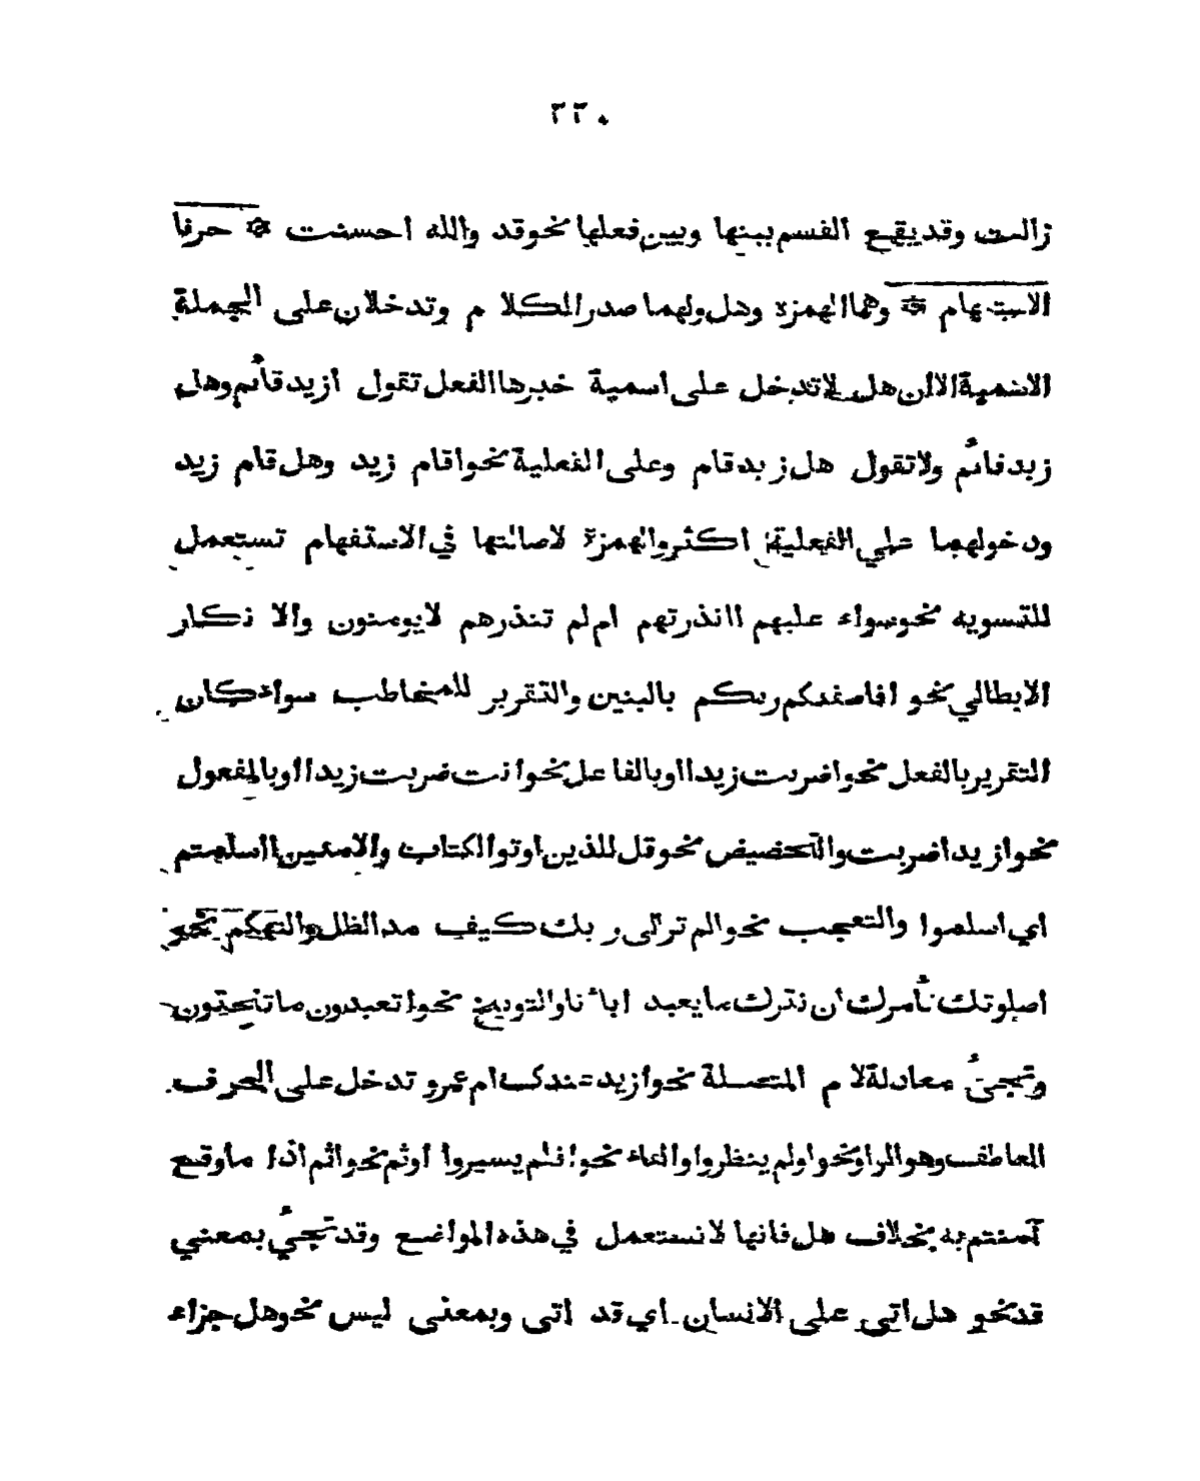 ٣٣٠
زالت وقد يقع القسم بينها وبين فعلها نحو قد والله احسنت * حرفا
الاستفهام * وهما الهمزة وهل ولهما صدر الكلام وتدخلان على الجملة
الاسمية الا ان هل لا تدخل على اسمية خبرها الفعل تقول ازيد قائم وهل
زيد قائم ولا تقول هل زيد قام وعلى الفعلية نحو اقام زيد وهل قام زيد
ودخولهما على الفعلية اكثر والهمزة لاصالتها في الاستفهام تستعمل
للتسويه نحو سواء عليهم اانذرتهم ام لم تنذرهم لا يومنون والا نكار
الابطالي نحو افاصفكم ربكم بالبنين والتقرير للمخاطب سواء كان
التقرير بالفعل نحو اضربت زيدا او بالفاعل نحو انت ضربت زيدا او بالمفعول
نحو ازيدا ضربت والتحضيض نحو وقل للذين اوتوا الكتاب والاميين ااسلمتم
اي اسلموا والتعجب نحو الم تر الى ربك كيف مد الظل والتهكم نحو
اصلوتك تأمرك ان نترك ما يعبد اباءنا والتوبيخ نحو اتعبدون ما تنحتون
وتجئ معادلة لا م المتصلة نحو ازيد عندك ام عمرو تدخل على الحرف
العاطف وهو الواو نحو اولم ينظروا والفاء نحو افلم يسيروا اوثم نحو اثم اذا ما وقع
آمنتم به بخلاف هل فانها لا تستعمل في هذه المواضع وقد تجيُ بمعني
قد نحو هل اتى على الانسان اي قد اتى وبمعنى ليس نحو هل جزاء